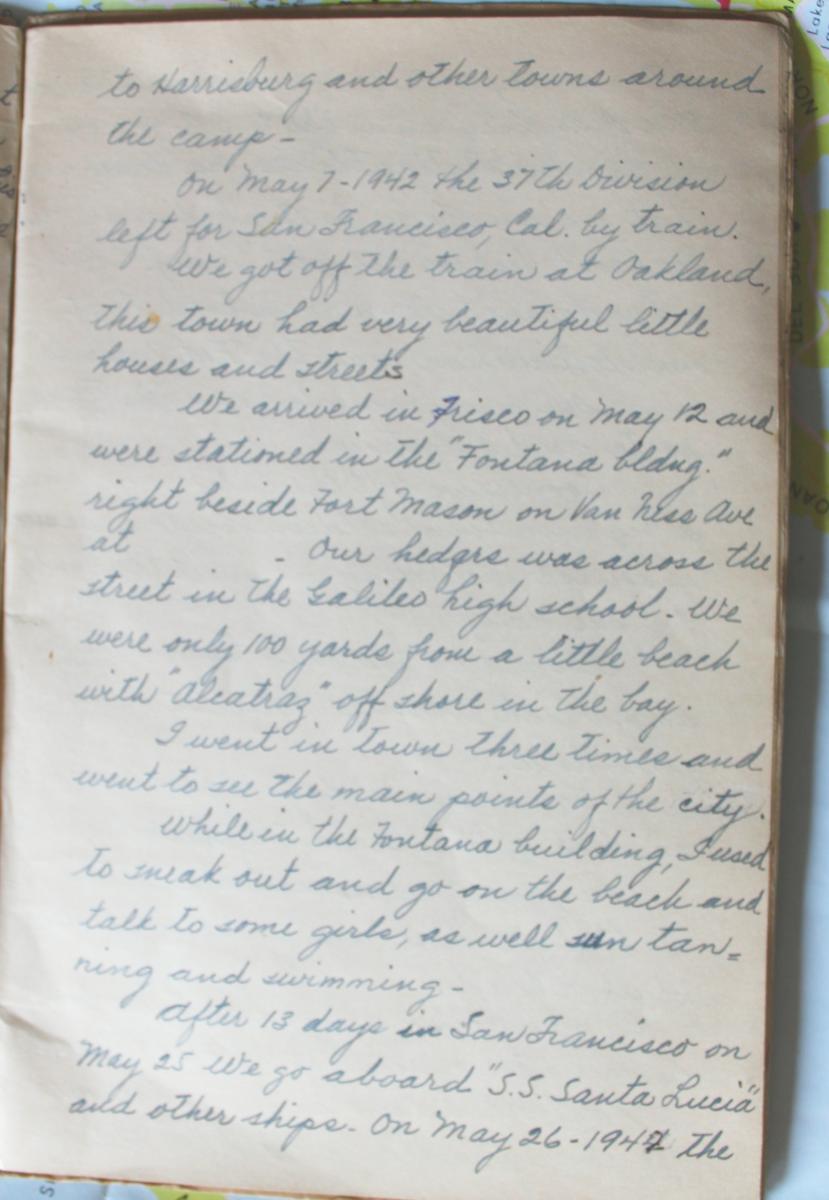 to Harrisburg and other towns around
the camp -
On May 7-1942 the 37th Division
left for San Francisco, Cal. by train.
We got off the train at Oakland,
this town had very beautiful little
houses and streets
We arrived in Frisco on May 12 and
were stationed in the "Fontana bldng."
right beside Fort Mason on Van Ness Ave
at - Our hedqrs was across the
street in the Galileo high school - We
were only 100 yards from a little beach
with "Alcatraz" off shore in the bay.
I went in town three times and
went to see the main points of the city.
While in the Fontana building, I used
to sneak out and go on the beach and
talk to some girls, as well sun tan=
ning and swimming -
After 13 days in San Francisco on
May 25 We go aboard "S.S. Santa Lucia"
and other ships - On May 26-1942 the